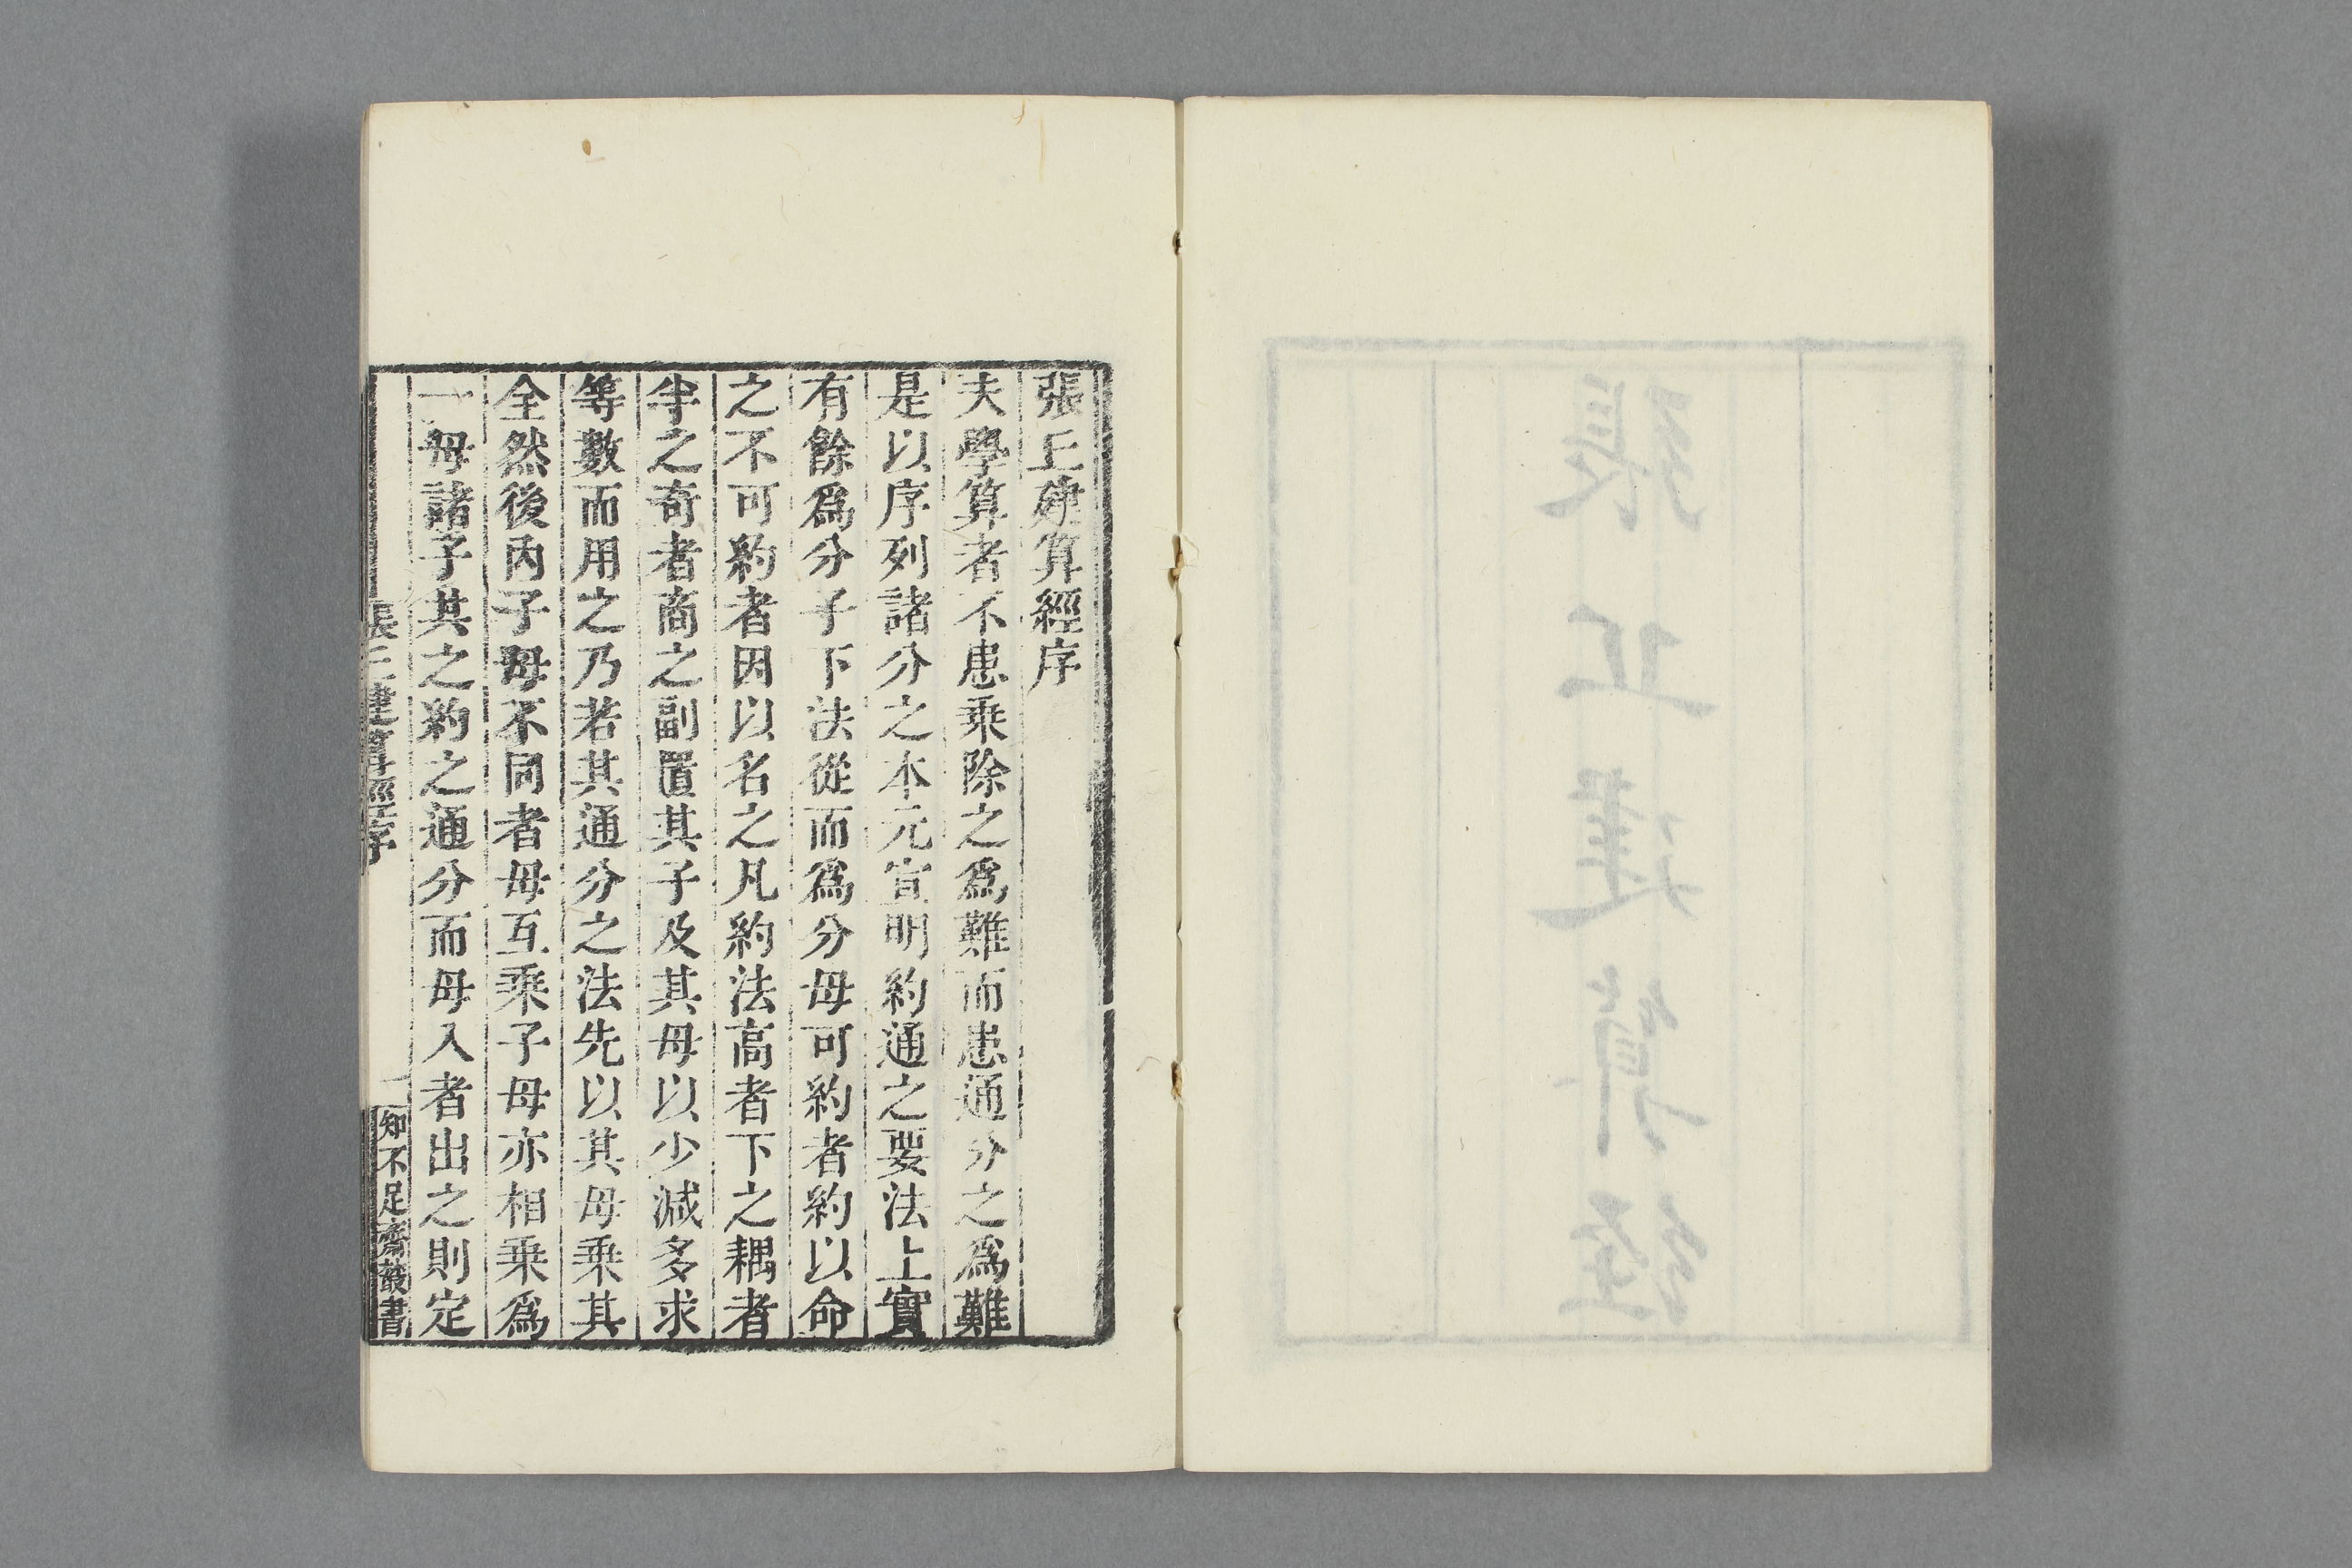 張丘建算經序
夫學算者不患乘除之爲難而患通分之爲難
是以序列諸分之本元宣明約通之要法上實
有餘爲分子下法從而爲分母可約者約以命
之不可約者因以名之凡約法高者下之耦者
半之奇者商之副置其子及其母以少減多求
等數而用之乃若其通分之法先以其母乘其
全然後內子母不同者母互乘子母亦相乘爲
一母諸子共之約之通分而母入者出之則定
張丘建算經序
一
知不足齋叢書
張丘建算經